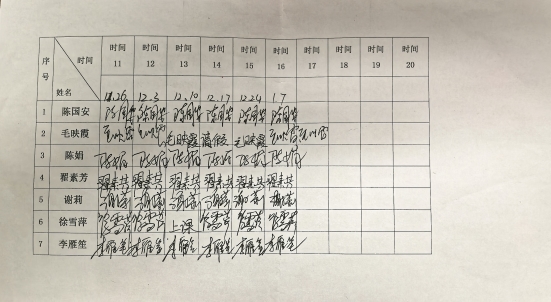 序号 时间 姓名 时间 11 时间 12 时间 13 时间 14 时间 15 时间 16 时间 17 时间 18 时间 19 时间 20
12.26 12.3 12.10 12.17 12.24 1.7
1 陈国安 陈国安 陈国安 陈国安 陈国安 陈国安 陈国安
2 毛映霞 毛映霞 毛映霞 毛映霞 请假 毛映霞 毛映霞
3 陈娟 陈娟 陈娟 陈娟 陈娟 陈娟 陈娟
4 翟素芳 翟素芳 翟素芳 翟素芳 翟素芳 翟素芳 翟素芳
5 谢莉 谢莉 谢莉 谢莉 谢莉 谢莉 谢莉
6 徐雪萍 徐雪萍 徐雪萍 上课 徐雪萍 徐雪萍 徐雪萍
7 李雁笙 李雁笙 李雁笙 李雁笙 李雁笙 李雁笙 李雁笙